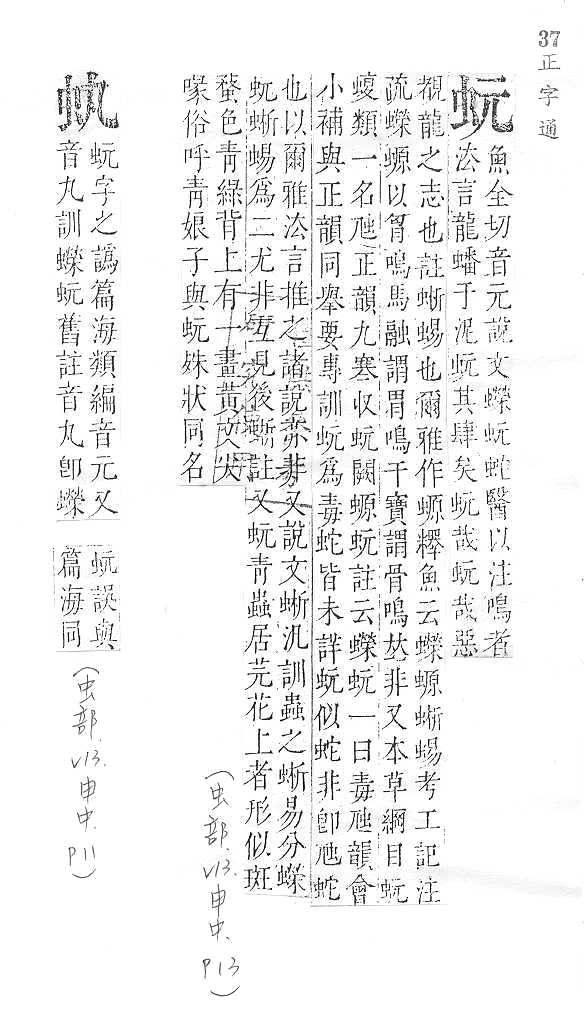 37正字通
蚖
魚全切音元說文蠑蚖蛇醫以注鳴者
㳒言龍蟠于泥蚖其肆矣蚖哉蚖哉惡
覩龍之志也註蜥蜴也爾雅作螈釋魚云蠑螈蜥蜴考工記注
疏蠑螈以胷鳴馬融謂胃鳴干寶謂骨鳴𠀤非又本草綱目蚖
蝮類一名虺正韻九寒收蚖闕螈蚖註云蠑蚖一曰毒虺韻會
小補與正韻同舉要專訓蚖爲毒蛇皆未詳蚖似蛇非卽虺蛇
也以爾雅㳒言推之諸說𠀤非又說文蜥汎訓蟲之蜥易分蠑
蚖蜥蜴爲二尤非互見後蜥註又蚖青蟲居芫花上者形似斑
蝥色青綠背上有一畫黃文尖
喙俗呼青娘子與蚖殊狀同名
(虫部. v13. 申中. P13)
蚖字之譌篇海類編音元又
音丸訓蠑蚖舊註音丸卽蠑
蚖誤與
篇海同
(虫部. v13. 申中. P11)